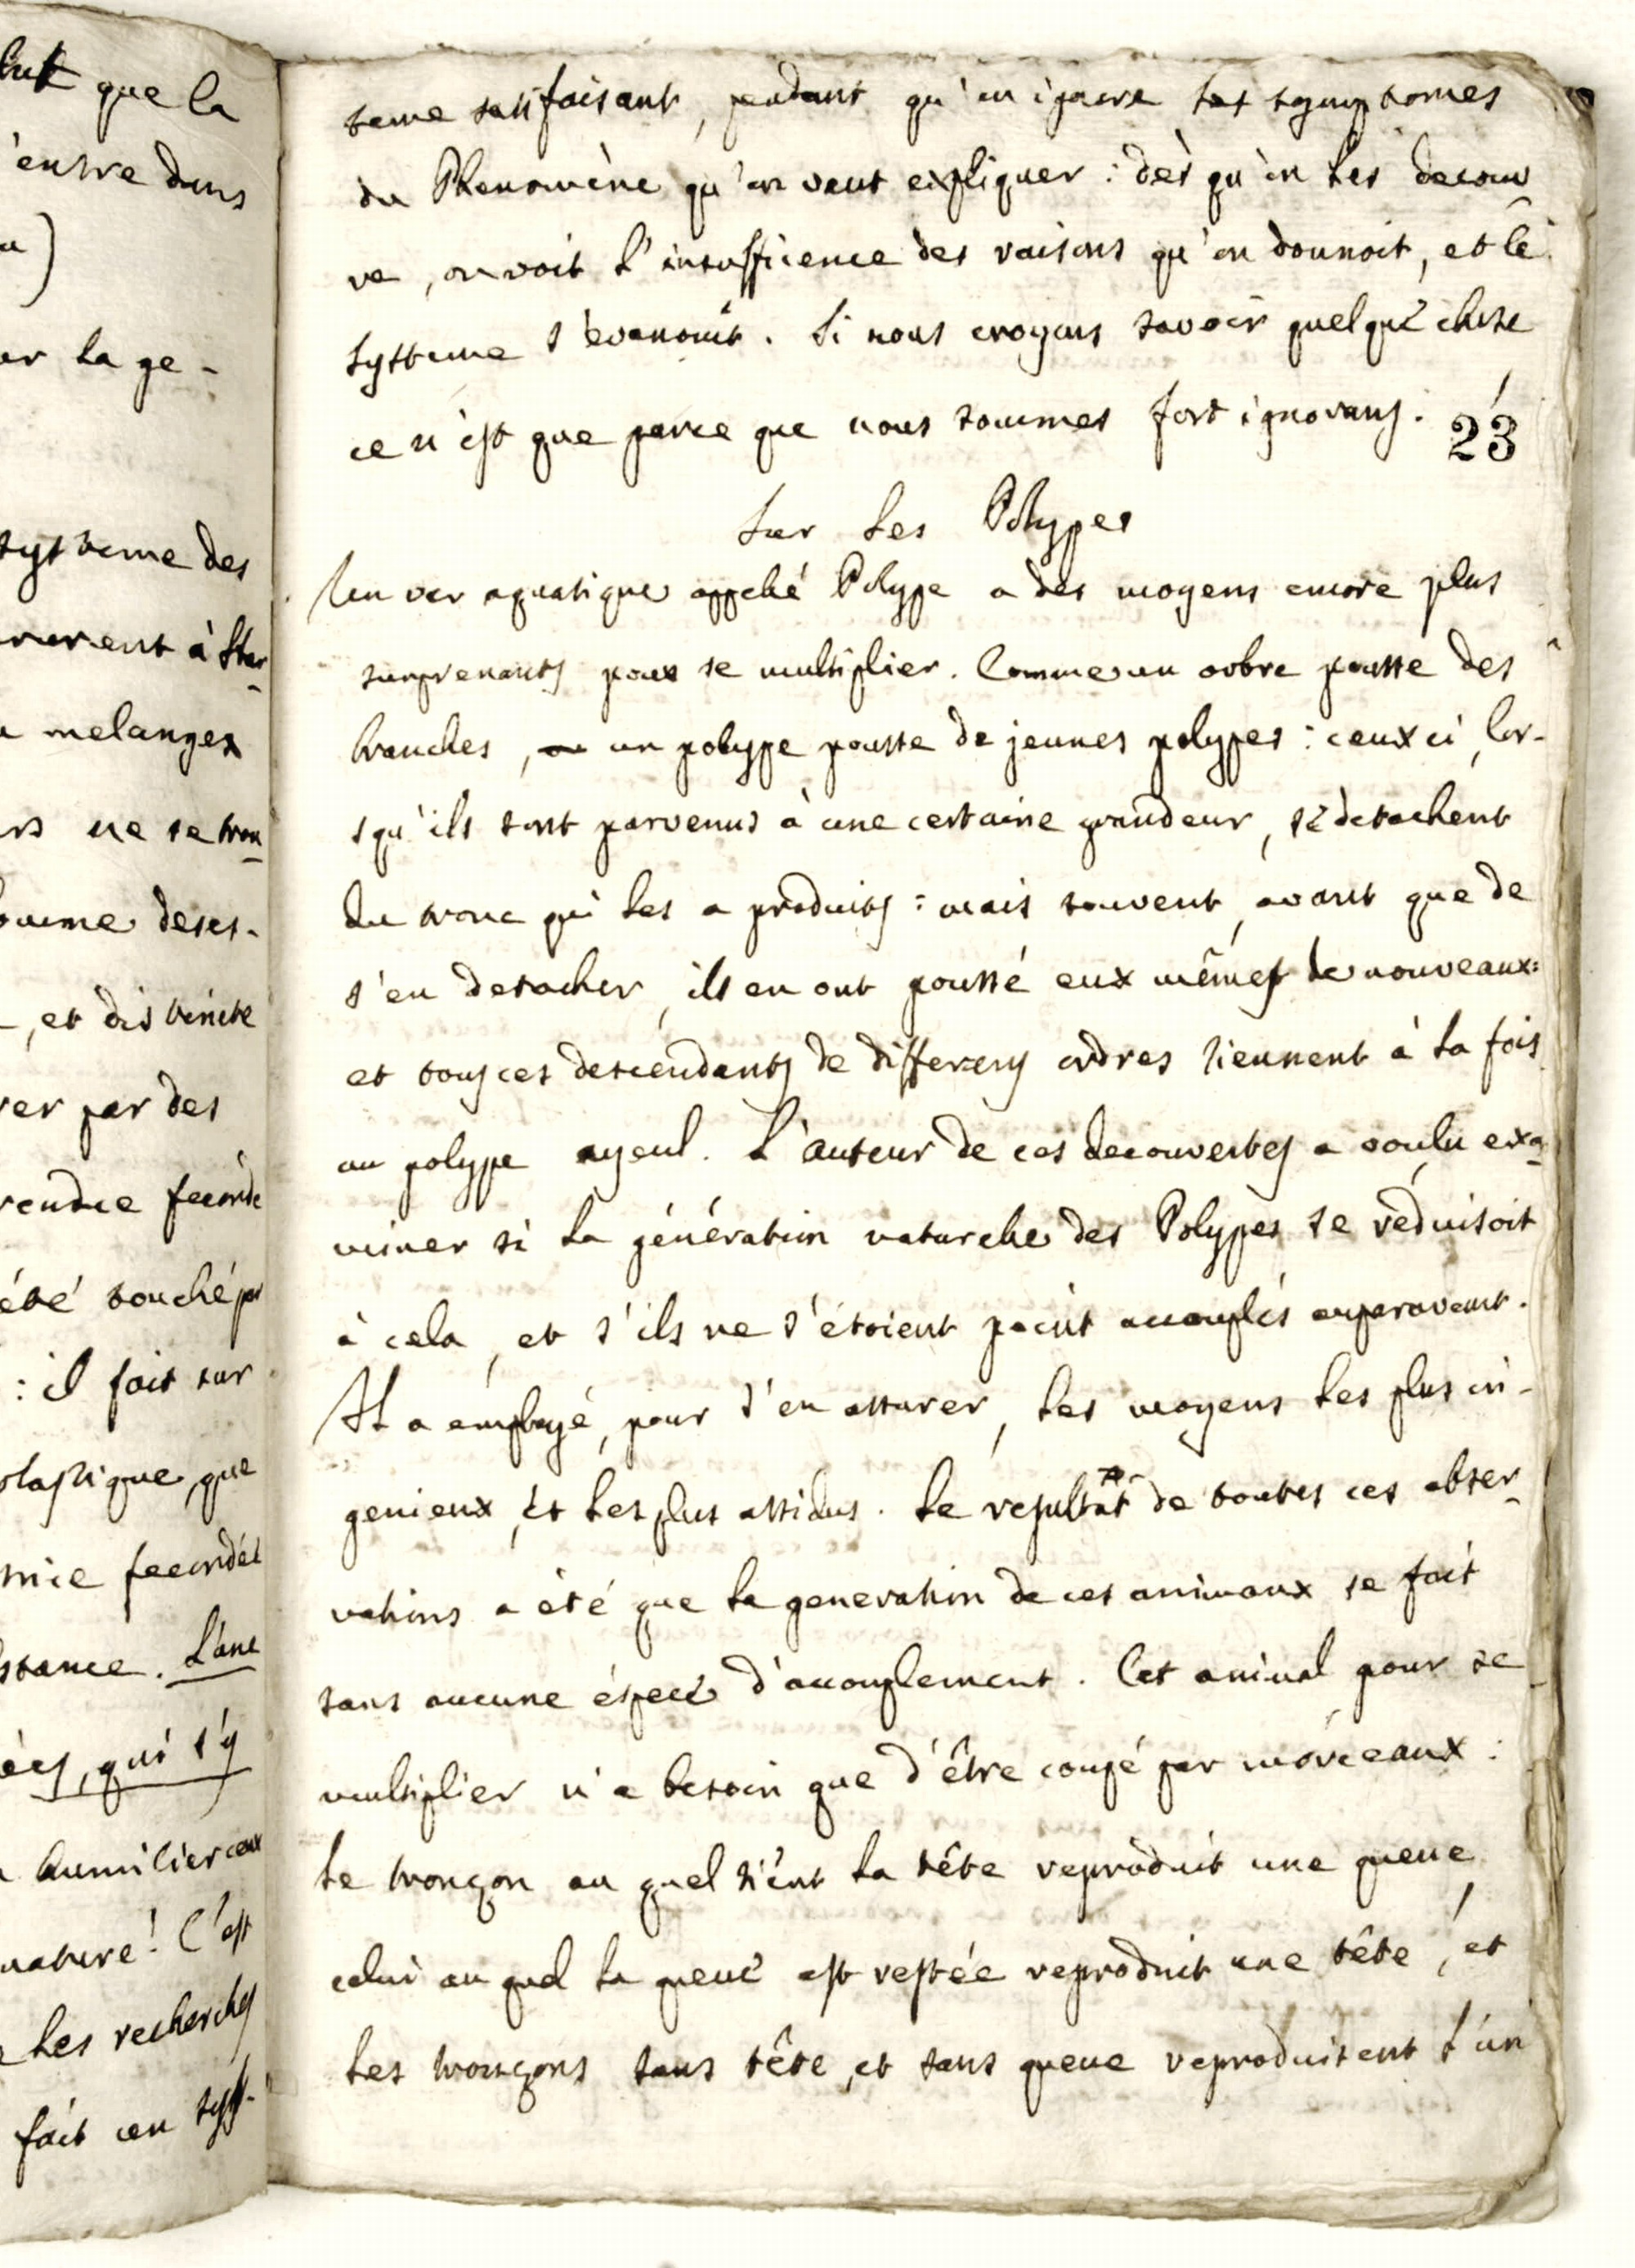 lut que la
'entre dans
a)
ur la ge-
systeme des
rerent à Har-
melanger
rs ne se trou-
omme deses-
-, et distincte
rer par des
rendue feconde
été touché par
: il fait sur
plastique, que
mie fecondés
stance. L'une
ées, qui s'y
humilier ceux
nature! C'est
les recherches
fait un syst-
teme satisfaisant, pendant qu'on ignore les symptomes
du Phenomène qu'on veut expliquer : dès qu'on les decouv
re, on voit l'insufficience des raisons qu'on donnoit, et le
systeme s'evanouit. Si nous croyons savoir quelque chose
ce n'est que parce que nous sommes fort ignorans.
23
Sur les Polypes
Un ver aquatique appelé Polype a des moyens encore plus
surprenants pour se multiplier. Comme un arbre pousse des
branches, un polype pousse de jeunes polypes : ceux ci, lor-
squ'ils sont parvenus à une certaine grandeur, se détachent
du tronc qui les a produits : mais souvent, avant que de
s'en detacher, ils en ont poussé eux mêmes de nouveaux:
et tous ces descendants de differens ordres tiennent à la fois
au polype ayeul. L'auteur de ces decouvertes a voulu exa-
miner si la génération naturelle des Polypes se réduisoit
à cela, et s'ils ne s'étoient point accouplés auparavant.
Il a employé, pour s'en assurer, les moyens les plus in-
genieux, et les plus assidus. Le resultat de toutes ces obser-
vations a été que la generation de ces animaux se fait
sans aucune espece d'accouplement. Cet animal pour se
multiplier n'a besoin que d'être coupé par morceaux :
le tronçon au quel tient la tête reproduit une queue,
celui au quel la queue est restée reproduit une tête, et
les tronçons sans tête, et sans queue reproduisent l'un